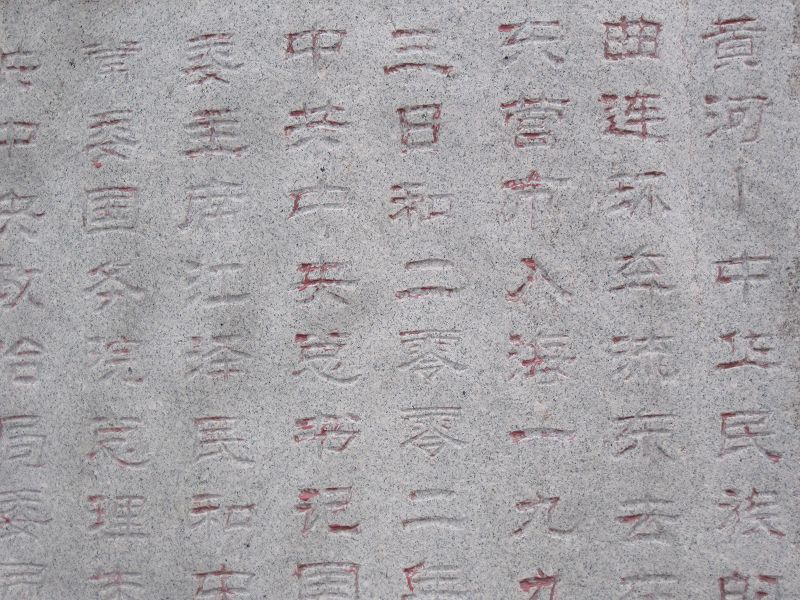 黄河—中华民族的
曲连环奔流东去在
东营市入海一九九
三日和二零零二年
中共中央总书记国
委主席江泽民和中
常委国务院总理朱
共中央政治局委员